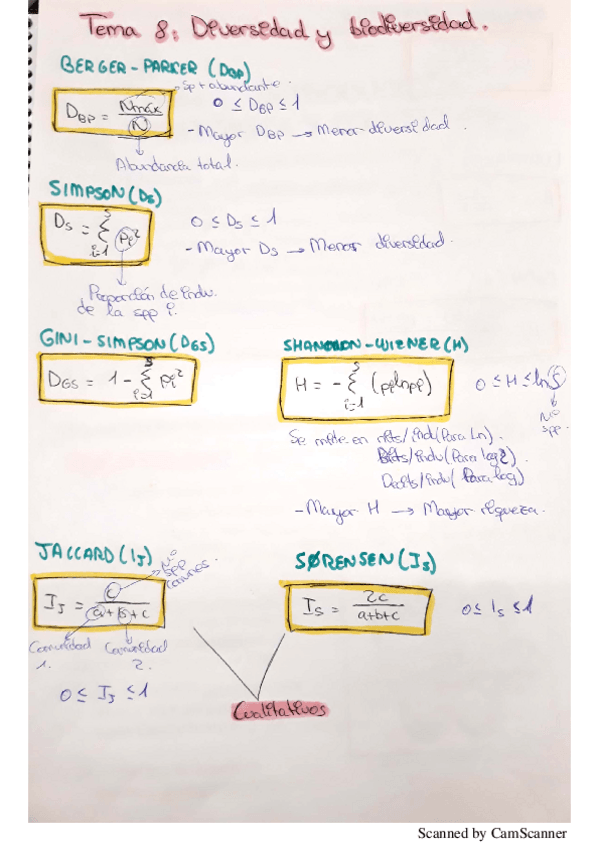 Tema 8: Diversidad y biodiversidad.
BERGER-PARKER (DBP)
sp + abundante.
DBP = Nmáx / N
0 ≤ DBP ≤ 1
- Mayor DBP → Menor diversidad.
Abundancia total.
SIMPSON (Ds)
Ds = Σ pi²
s
i=1
0 ≤ Ds ≤ 1
- Mayor Ds → Menor diversidad.
Proporción de indiv.
de la spp i.
GINI-SIMPSON (DGS)
DGS = 1 - Σ pi²
s
i=1
SHANNON-WIENER (H)
H = - Σ
s
i=1
0 ≤ H ≤ ln S
Nº
spp.
Se mide en nits/indiv (Para Ln).
Bits/indiv (Para log2).
Decits/indiv (Para log)
- Mayor H → Mayor riqueza.
JACCARD (IJ)
Nº
spp
comunes.
IJ = c / a+b+c
Comunidad
1.
Comunidad
2.
0 ≤ IJ ≤ 1
SØRENSEN (Is)
Is = 2c / a+b+c
0 ≤ Is ≤ 1
Cualitativos
Scanned by CamScanner